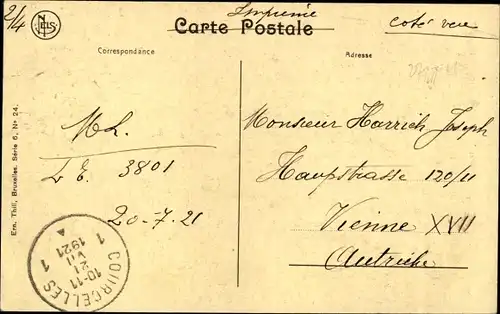 2/4
NELS
Imprimé
Carte Postale
coté vue
Correspondance
Adresse
Ern. Thill, Bruxelles. Série 6, No 24.
ML.
L E. 3801
20-7-21
Monsieur Harrich Joseph
Haupstrasse 120/11
Vienne XVII
Autriche
COURCELLES
1 1
10-11
21
VII
1921